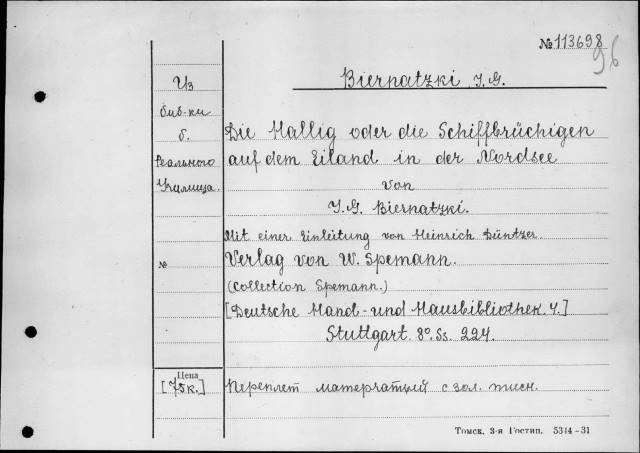 № 113698
96
Biernatzki, J.G.
Из
биб-ки
б.
Реального
Училища.
Die Hallig oder die Schiffbrüchigen
auf dem Eiland in der Nordsee
von
J.G. Biernatzki.
Mit einer Einleitung von Heinrich Düntzer.
Verlag von W. Spemann.
№
(Collection Spemann.)
[Deutsche Hand- und Hausbibliothek. 4.]
Stuttgart. 8°. Ss. 224.
Цена
[75к.]
Переплет матерчатый с зол. тисн.
Томск. 3-я Гостип. 5344-31